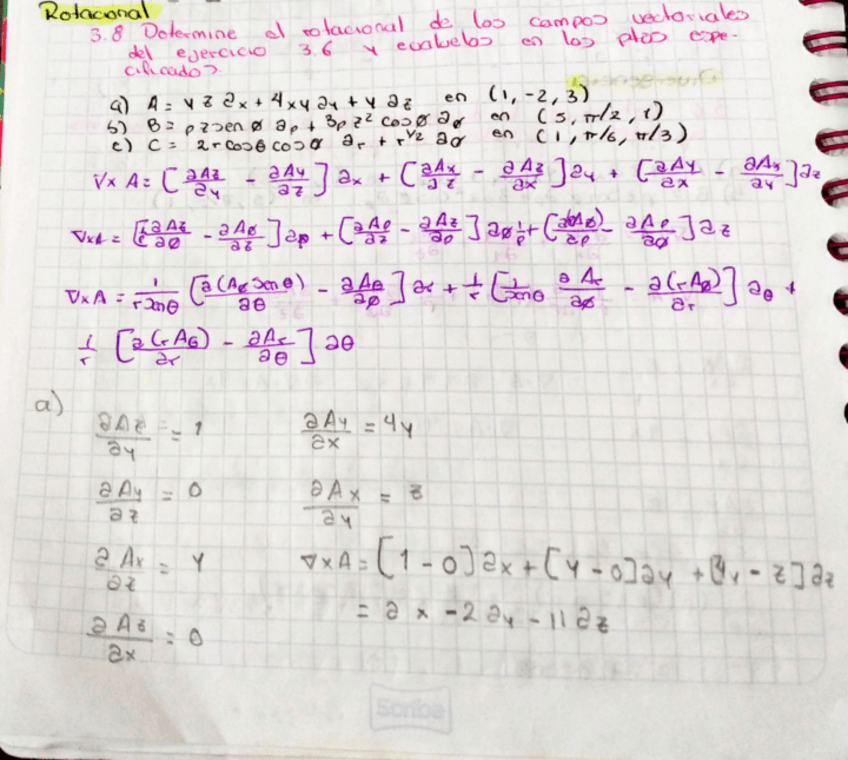 Rotacional
3.8 Determine el rotacional de los campos vectoriales
del ejercicio 3.6 y evaluelos en los ptos espe-
cificados.
a) A = y z ax + 4xy ay + y az en (1, -2, 3)
b) B = ρ z sen ø aρ + 3ρ z² cos ø aø en (5, π/2, 1)
c) C = 2r cos θ cos ø ar + r^1/2 aø en (1, π/6, π/3)
∇x A = [∂Az/∂y - ∂Ay/∂z] ax + [∂Ax/∂z - ∂Az/∂x] ay + [∂Ay/∂x - ∂Ax/∂y] az
∇xA = [1/ρ ∂Az/∂ø - ∂Aø/∂z] aρ + [∂Aρ/∂z - ∂Az/∂ρ] aø + 1/ρ [∂(ρAø)/∂ρ - ∂Aρ/∂ø] az
∇xA = 1/r senθ [∂(Aø senθ)/∂θ - ∂Aθ/∂ø] ar + 1/r [1/senθ ∂Ar/∂ø - ∂(rAø)/∂r] aθ +
1/r [∂(rAθ)/∂r - ∂Ar/∂θ] aθ
a)
∂Az/∂y = 1 ∂Ay/∂x = 4y
∂Ay/∂z = 0 ∂Ax/∂y = z
∂Ax/∂z = y ∇xA = [1 - 0] ax + [y - 0] ay + [4y - z] az
∂Az/∂x = 0 = ax - 2 ay - 11 az
Scribe